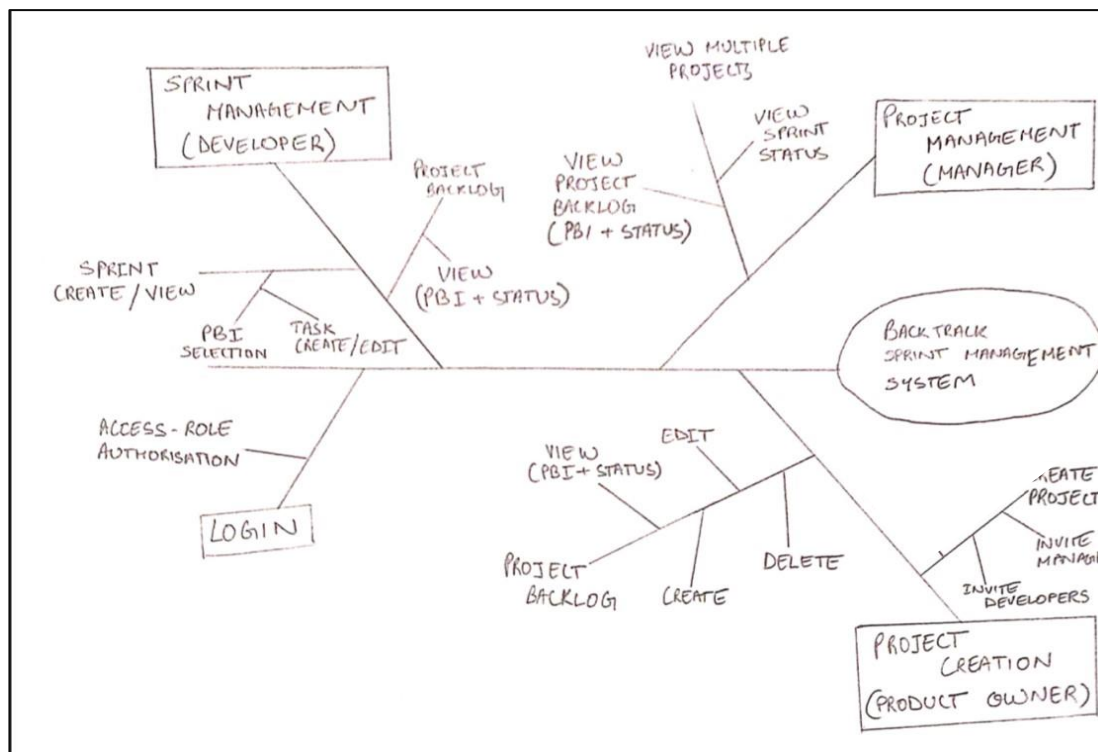 SPRINT
MANAGEMENT
(DEVELOPER)
PROJECT
BACKLOG
VIEW
(PBI + STATUS)
SPRINT
CREATE / VIEW
PBI
SELECTION
TASK
CREATE/EDIT
VIEW MULTIPLE
PROJECTS
VIEW
SPRINT
STATUS
VIEW
PROJECT
BACKLOG
(PBI + STATUS)
PROJECT
MANAGEMENT
(MANAGER)
BACKTRACK
SPRINT MANAGEMENT
SYSTEM
ACCESS-ROLE
AUTHORISATION
LOGIN
EDIT
VIEW
(PBI + STATUS)
PROJECT
BACKLOG
CREATE
DELETE
REATE
PROJECT
INVITE
MANAG
INVITE
DEVELOPERS
PROJECT
CREATION
(PRODUCT OWNER)